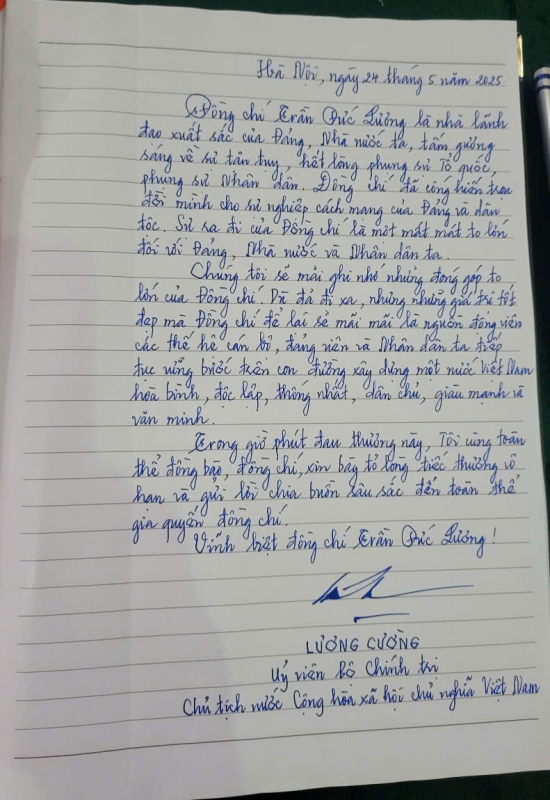 Hà Nội, ngày 24 tháng 5 năm 2025
Đồng chí Trần Đức Lương là nhà lãnh
đạo xuất sắc của Đảng, Nhà nước ta, tấm gương
sáng về sự tận tụy, hết lòng phụng sự Tổ quốc,
phụng sự Nhân dân. Đồng chí đã cống hiến trọn
đời mình cho sự nghiệp cách mạng của Đảng và dân
tộc. Sự ra đi của Đồng chí là một mất mát to lớn
đối với Đảng, Nhà nước và Nhân dân ta.
Chúng tôi sẽ mãi ghi nhớ những đóng góp to
lớn của Đồng chí. Dù đã đi xa, nhưng những giá trị tốt
đẹp mà Đồng chí để lại sẽ mãi mãi là nguồn động viên
các thế hệ cán bộ, đảng viên và Nhân dân ta tiếp
tục vững bước trên con đường xây dựng một nước Việt Nam
hòa bình, độc lập, thống nhất, dân chủ, giàu mạnh và
văn minh.
Trong giờ phút đau thương này, Tôi cùng toàn
thể đồng bào, đồng chí, xin bày tỏ lòng tiếc thương vô
hạn và gửi lời chia buồn sâu sắc đến toàn thể
gia quyến đồng chí.
Vĩnh biệt đồng chí Trần Đức Lương!
LƯƠNG CƯỜNG
Uỷ viên bộ Chính trị
Chủ tịch nước Cộng hòa xã hội chủ nghĩa Việt Nam